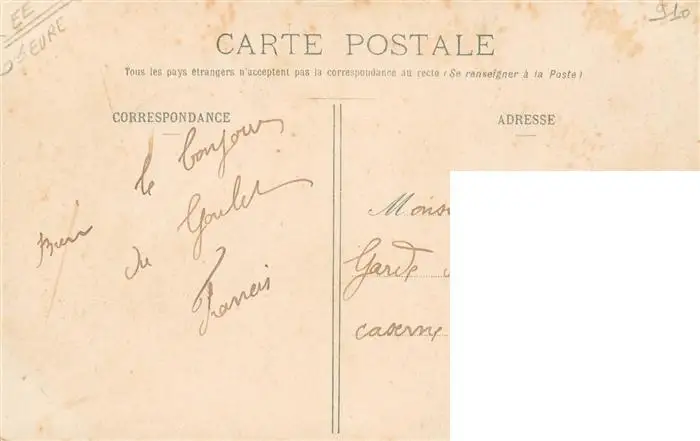 EE
D'EURE
910
CARTE POSTALE
Tous les pays étrangers n'acceptent pas la correspondance au recto (Se renseigner à la Poste)
CORRESPONDANCE
le bonjour
du Goulet
Francis
ADRESSE
Monsi
Garde
caserne